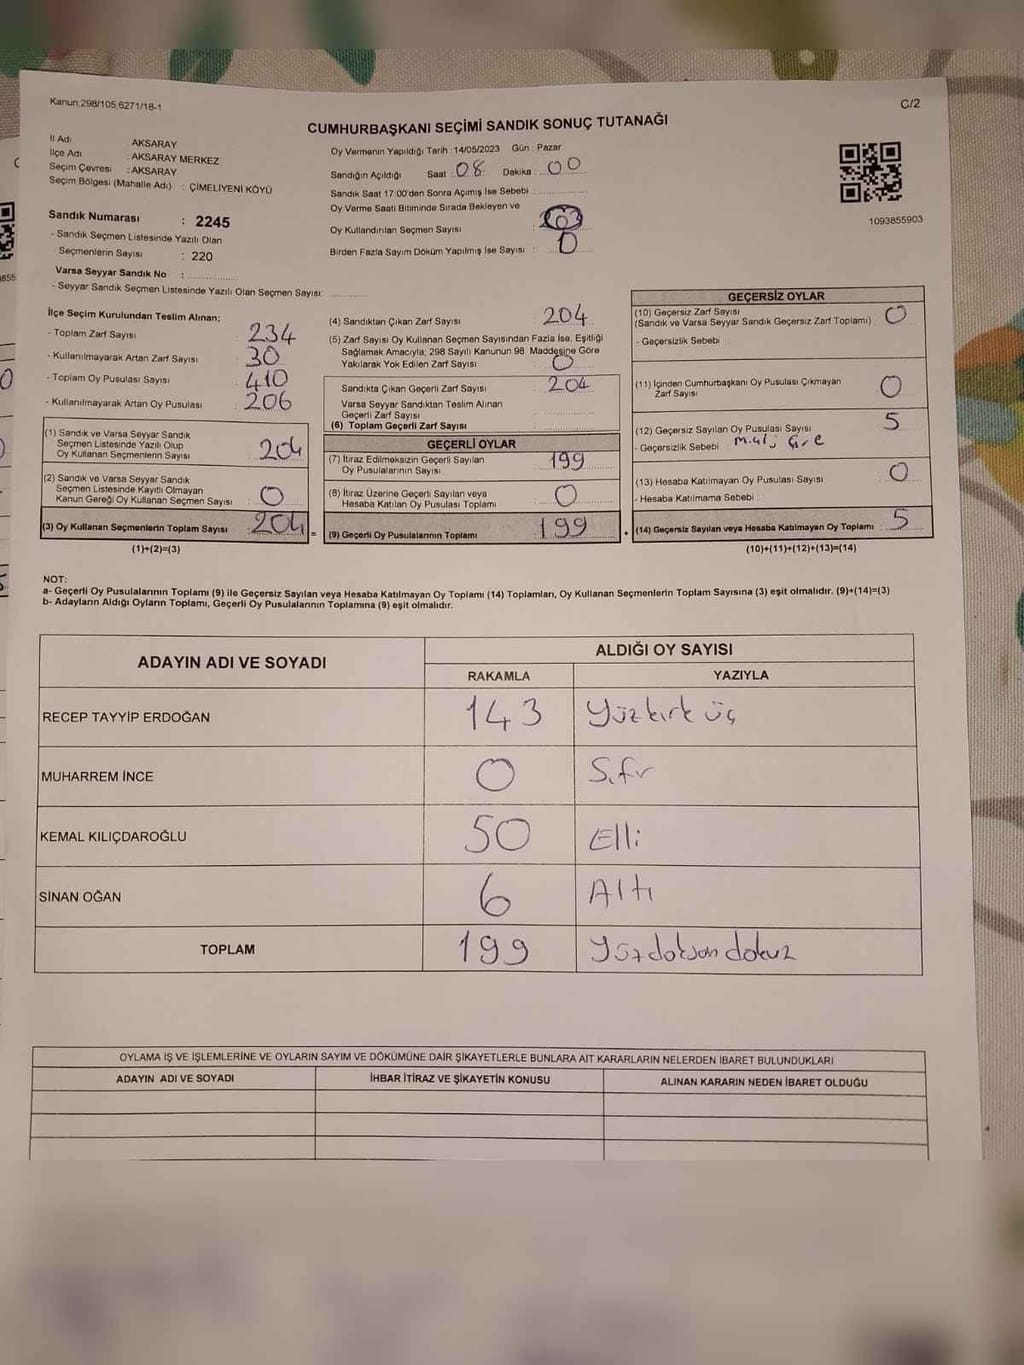 Kanun:298/105,6271/18-1
C/2
CUMHURBAŞKANI SEÇİMİ SANDIK SONUÇ TUTANAĞI
İl Adı : AKSARAY
İlçe Adı : AKSARAY MERKEZ
Seçim Çevresi : AKSARAY
Seçim Bölgesi (Mahalle Adı) : ÇİMELİYENİ KÖYÜ
Sandık Numarası : 2245
- Sandık Seçmen Listesinde Yazılı Olan
Seçmenlerin Sayısı : 220
Varsa Seyyar Sandık No :
- Seyyar Sandık Seçmen Listesinde Yazılı Olan Seçmen Sayısı:
Oy Vermenin Yapıldığı Tarih : 14/05/2023 Gün : Pazar
Sandığın Açıldığı Saat : 08 Dakika : 00
Sandık Saat 17:00'den Sonra Açımış İse Sebebi :
Oy Verme Saati Bitiminde Sırada Bekleyen ve
Oy Kullandırılan Seçmen Sayısı :
Birden Fazla Sayım Döküm Yapılmış İse Sayısı : 0
1093855903
İlçe Seçim Kurulundan Teslim Alınan;
- Toplam Zarf Sayısı : 234
- Kullanılmayarak Artan Zarf Sayısı : 30
- Toplam Oy Pusulası Sayısı : 410
- Kullanılmayarak Artan Oy Pusulası : 206
(1) Sandık ve Varsa Seyyar Sandık
Seçmen Listesinde Yazılı Olup
Oy Kullanan Seçmenlerin Sayısı : 204
(2) Sandık ve Varsa Seyyar Sandık
Seçmen Listesinde Kayıtlı Olmayan
Kanun Gereği Oy Kullanan Seçmen Sayısı : 0
(3) Oy Kullanan Seçmenlerin Toplam Sayısı : 204
(1)+(2)=(3)
(4) Sandıktan Çıkan Zarf Sayısı : 204
(5) Zarf Sayısı Oy Kullanan Seçmen Sayısından Fazla İse, Eşitliği
Sağlamak Amacıyla; 298 Sayılı Kanunun 98. Maddesine Göre
Yakılarak Yok Edilen Zarf Sayısı : 0
Sandıkta Çıkan Geçerli Zarf Sayısı : 204
Varsa Seyyar Sandıktan Teslim Alınan
Geçerli Zarf Sayısı :
(6) Toplam Geçerli Zarf Sayısı :
GEÇERLİ OYLAR
(7) İtiraz Edilmeksizin Geçerli Sayılan
Oy Pusulalarının Sayısı : 199
(8) İtiraz Üzerine Geçerli Sayılan veya
Hesaba Katılan Oy Pusulası Toplamı : 0
= (9) Geçerli Oy Pusulalarının Toplamı : 199 +
GEÇERSİZ OYLAR
(10) Geçersiz Zarf Sayısı
(Sandık ve Varsa Seyyar Sandık Geçersiz Zarf Toplamı) : 0
- Geçersizlik Sebebi :
(11) İçinden Cumhurbaşkanı Oy Pusulası Çıkmayan
Zarf Sayısı : 0
(12) Geçersiz Sayılan Oy Pusulası Sayısı : 5
- Geçersizlik Sebebi :
(13) Hesaba Katılmayan Oy Pusulası Sayısı : 0
- Hesaba Katılmama Sebebi :
(14) Geçersiz Sayılan veya Hesaba Katılmayan Oy Toplamı : 5
(10)+(11)+(12)+(13)=(14)
NOT:
a- Geçerli Oy Pusulalarının Toplamı (9) ile Geçersiz Sayılan veya Hesaba Katılmayan Oy Toplamı (14) Toplamları, Oy Kullanan Seçmenlerin Toplam Sayısına (3) eşit olmalıdır. (9)+(14)=(3)
b- Adayların Aldığı Oyların Toplamı, Geçerli Oy Pusulalarının Toplamına (9) eşit olmalıdır.
ADAYIN ADI VE SOYADI ALDIĞI OY SAYISI
RAKAMLA YAZIYLA
RECEP TAYYİP ERDOĞAN 143 Yüzkırk üç
MUHARREM İNCE 0 Sıfır
KEMAL KILIÇDAROĞLU 50 Elli
SİNAN OĞAN 6 Altı
TOPLAM 199 Yüzdoksan dokuz
OYLAMA İŞ VE İŞLEMLERİNE VE OYLARIN SAYIM VE DÖKÜMÜNE DAİR ŞİKAYETLERLE BUNLARA AİT KARARLARIN NELERDEN İBARET BULUNDUKLARI
ADAYIN ADI VE SOYADI İHBAR İTİRAZ VE ŞİKAYETİN KONUSU ALINAN KARARIN NEDEN İBARET OLDUĞU